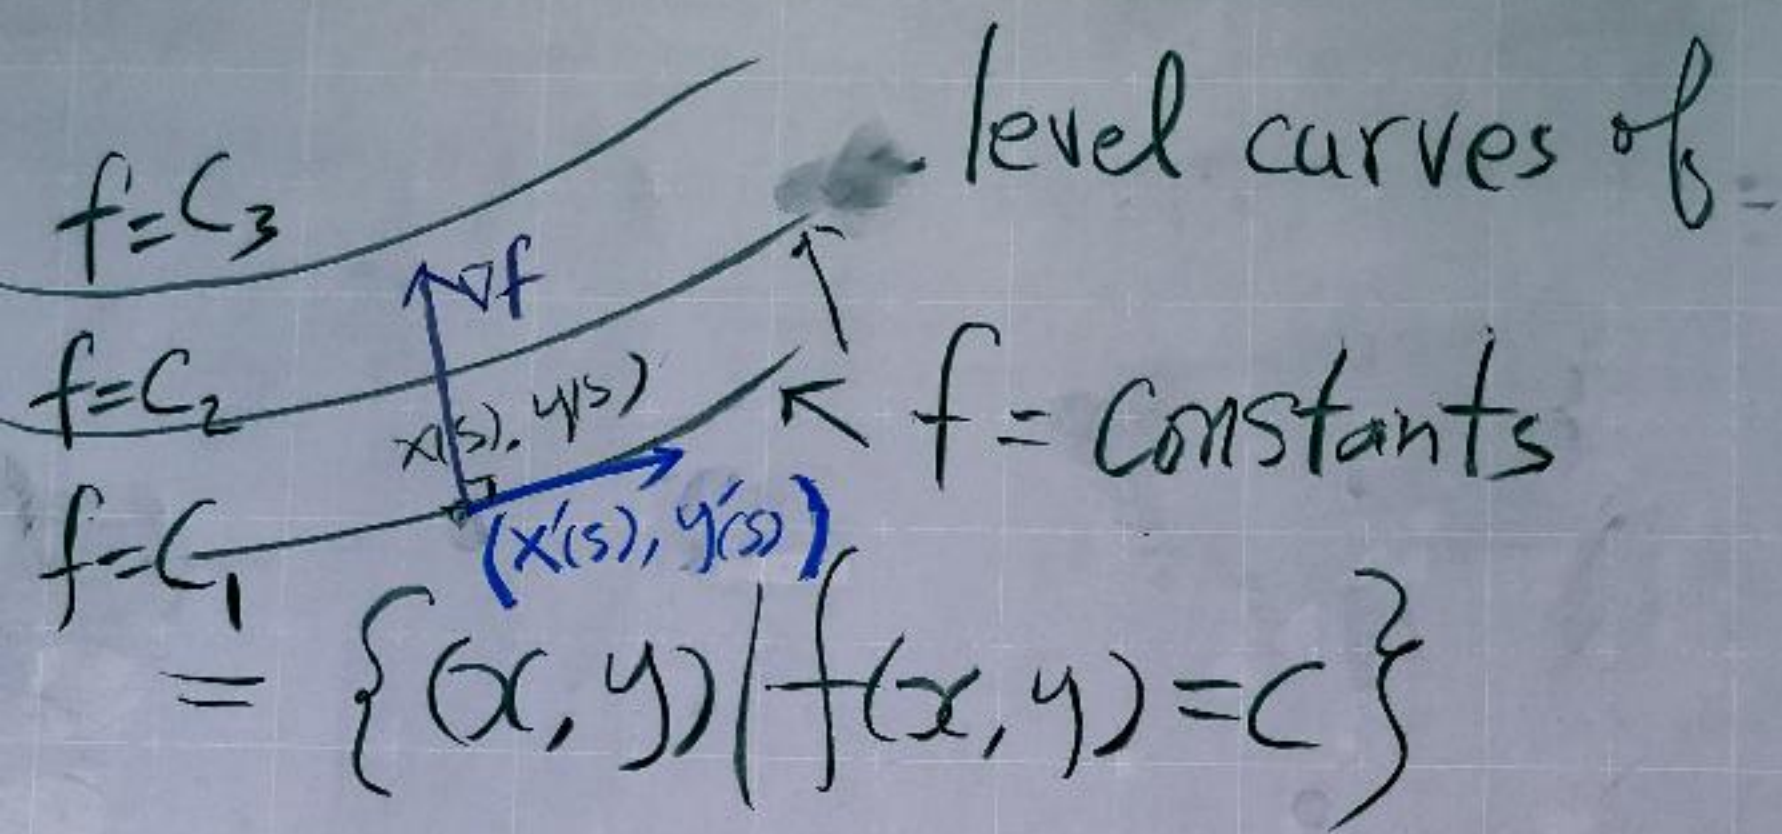 level curves of
f=C3
∇f
f=C2
x(s), y(s)
f = Constants
f=C1
(x'(s), y'(s))
= {(x, y)|f(x, y)=C}